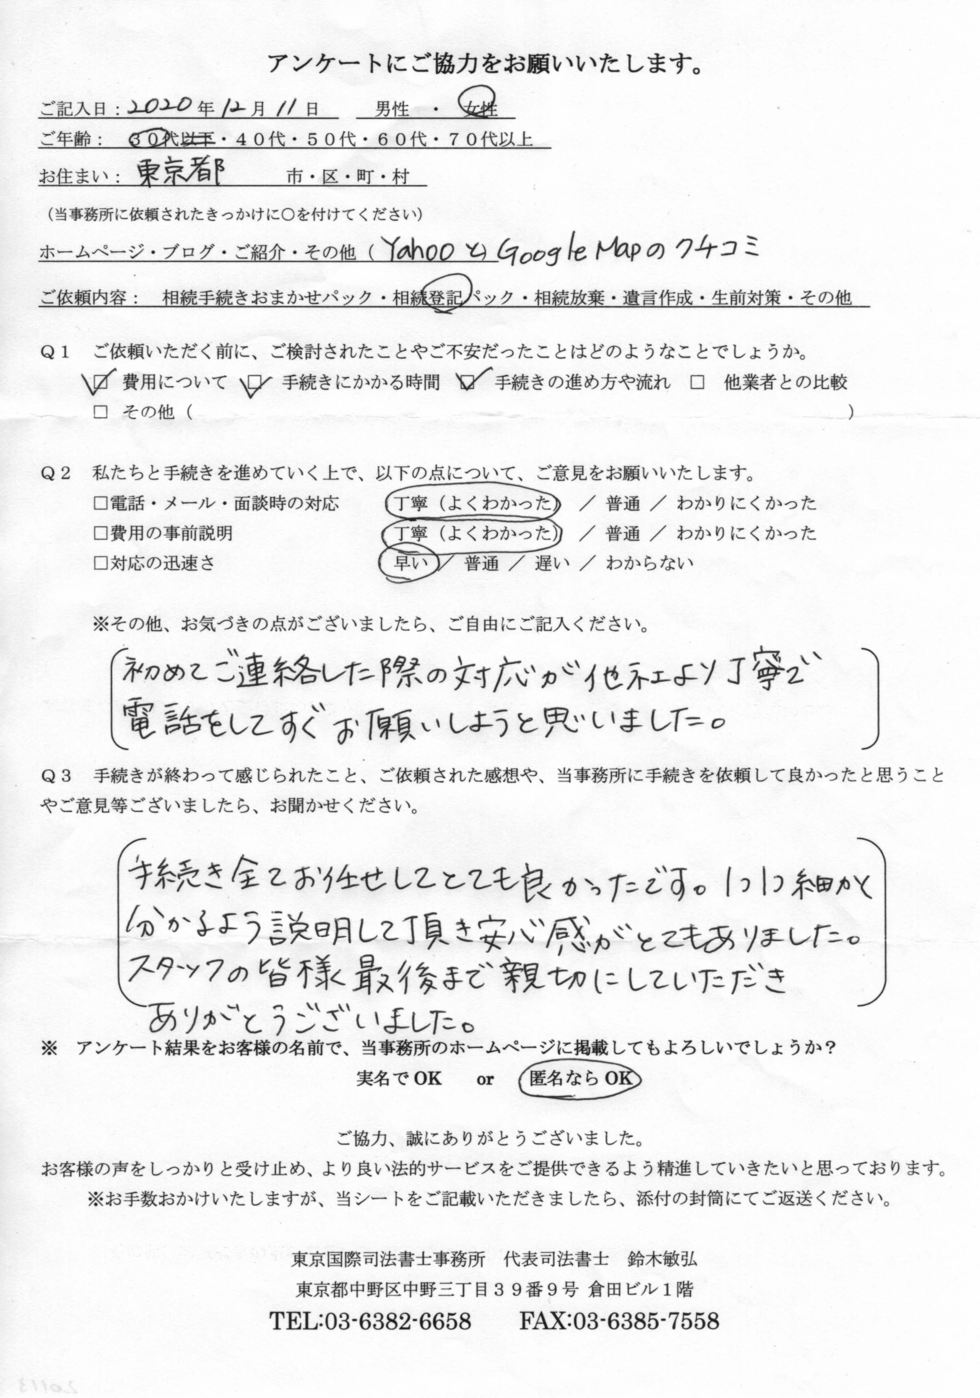 アンケートにご協力をお願いいたします。
ご記入日：2020年12月11日　男性　・　女性
ご年齢：　３０代以下・４０代・５０代・６０代・７０代以上
お住まい：　東京都　市・区・町・村
（当事務所に依頼されたきっかけに○を付けてください）
ホームページ・ブログ・ご紹介・その他（Yahooと）Google Mapのクチコミ
ご依頼内容：　相続手続きおまかせパック・相続登記パック・相続放棄・遺言作成・生前対策・その他
Ｑ１　ご依頼いただく前に、ご検討されたことやご不安だったことはどのようなことでしょうか。
☑ 費用について　☑ 手続きにかかる時間　☑ 手続きの進め方や流れ　□ 他業者との比較
□ その他（　　　）
Ｑ２　私たちと手続きを進めていく上で、以下の点について、ご意見をお願いいたします。
□電話・メール・面談時の対応　丁寧（よくわかった）　／ 普通 ／ わかりにくかった
□費用の事前説明　丁寧（よくわかった）　／ 普通 ／ わかりにくかった
□対応の迅速さ　早い ／ 普通 ／ 遅い ／ わからない
※その他、お気づきの点がございましたら、ご自由にご記入ください。
初めてご連絡した際の対応が他社より丁寧で
電話をしてすぐお願いしようと思いました。
Ｑ３　手続きが終わって感じられたこと、ご依頼された感想や、当事務所に手続きを依頼して良かったと思うこと
やご意見等ございましたら、お聞かせください。
手続き全てお任せしてとても良かったです。1つ1つ細かく
分かるよう説明して頂き安心感がとてもありました。
スタッフの皆様最後まで親切にしていただき
ありがとうございました。
※　アンケート結果をお客様の名前で、当事務所のホームページに掲載してもよろしいでしょうか？
実名でOK　or　匿名ならOK
ご協力、誠にありがとうございました。
お客様の声をしっかりと受け止め、より良い法的サービスをご提供できるよう精進していきたいと思っております。
※お手数おかけいたしますが、当シートをご記載いただきましたら、添付の封筒にてご返送ください。
東京国際司法書士事務所　代表司法書士　鈴木敏弘
東京都中野区中野三丁目３９番９号 倉田ビル１階
TEL:03-6382-6658　FAX:03-6385-7558